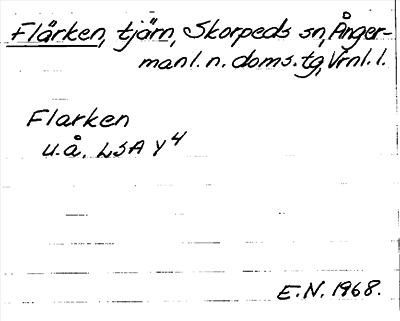 Flärken, tjärn, Skorpeds sn, Ånger-
manl. n. doms. tg, Vrnl. l.
Flarken
u.å. LSA Y4
E.N. 1968.